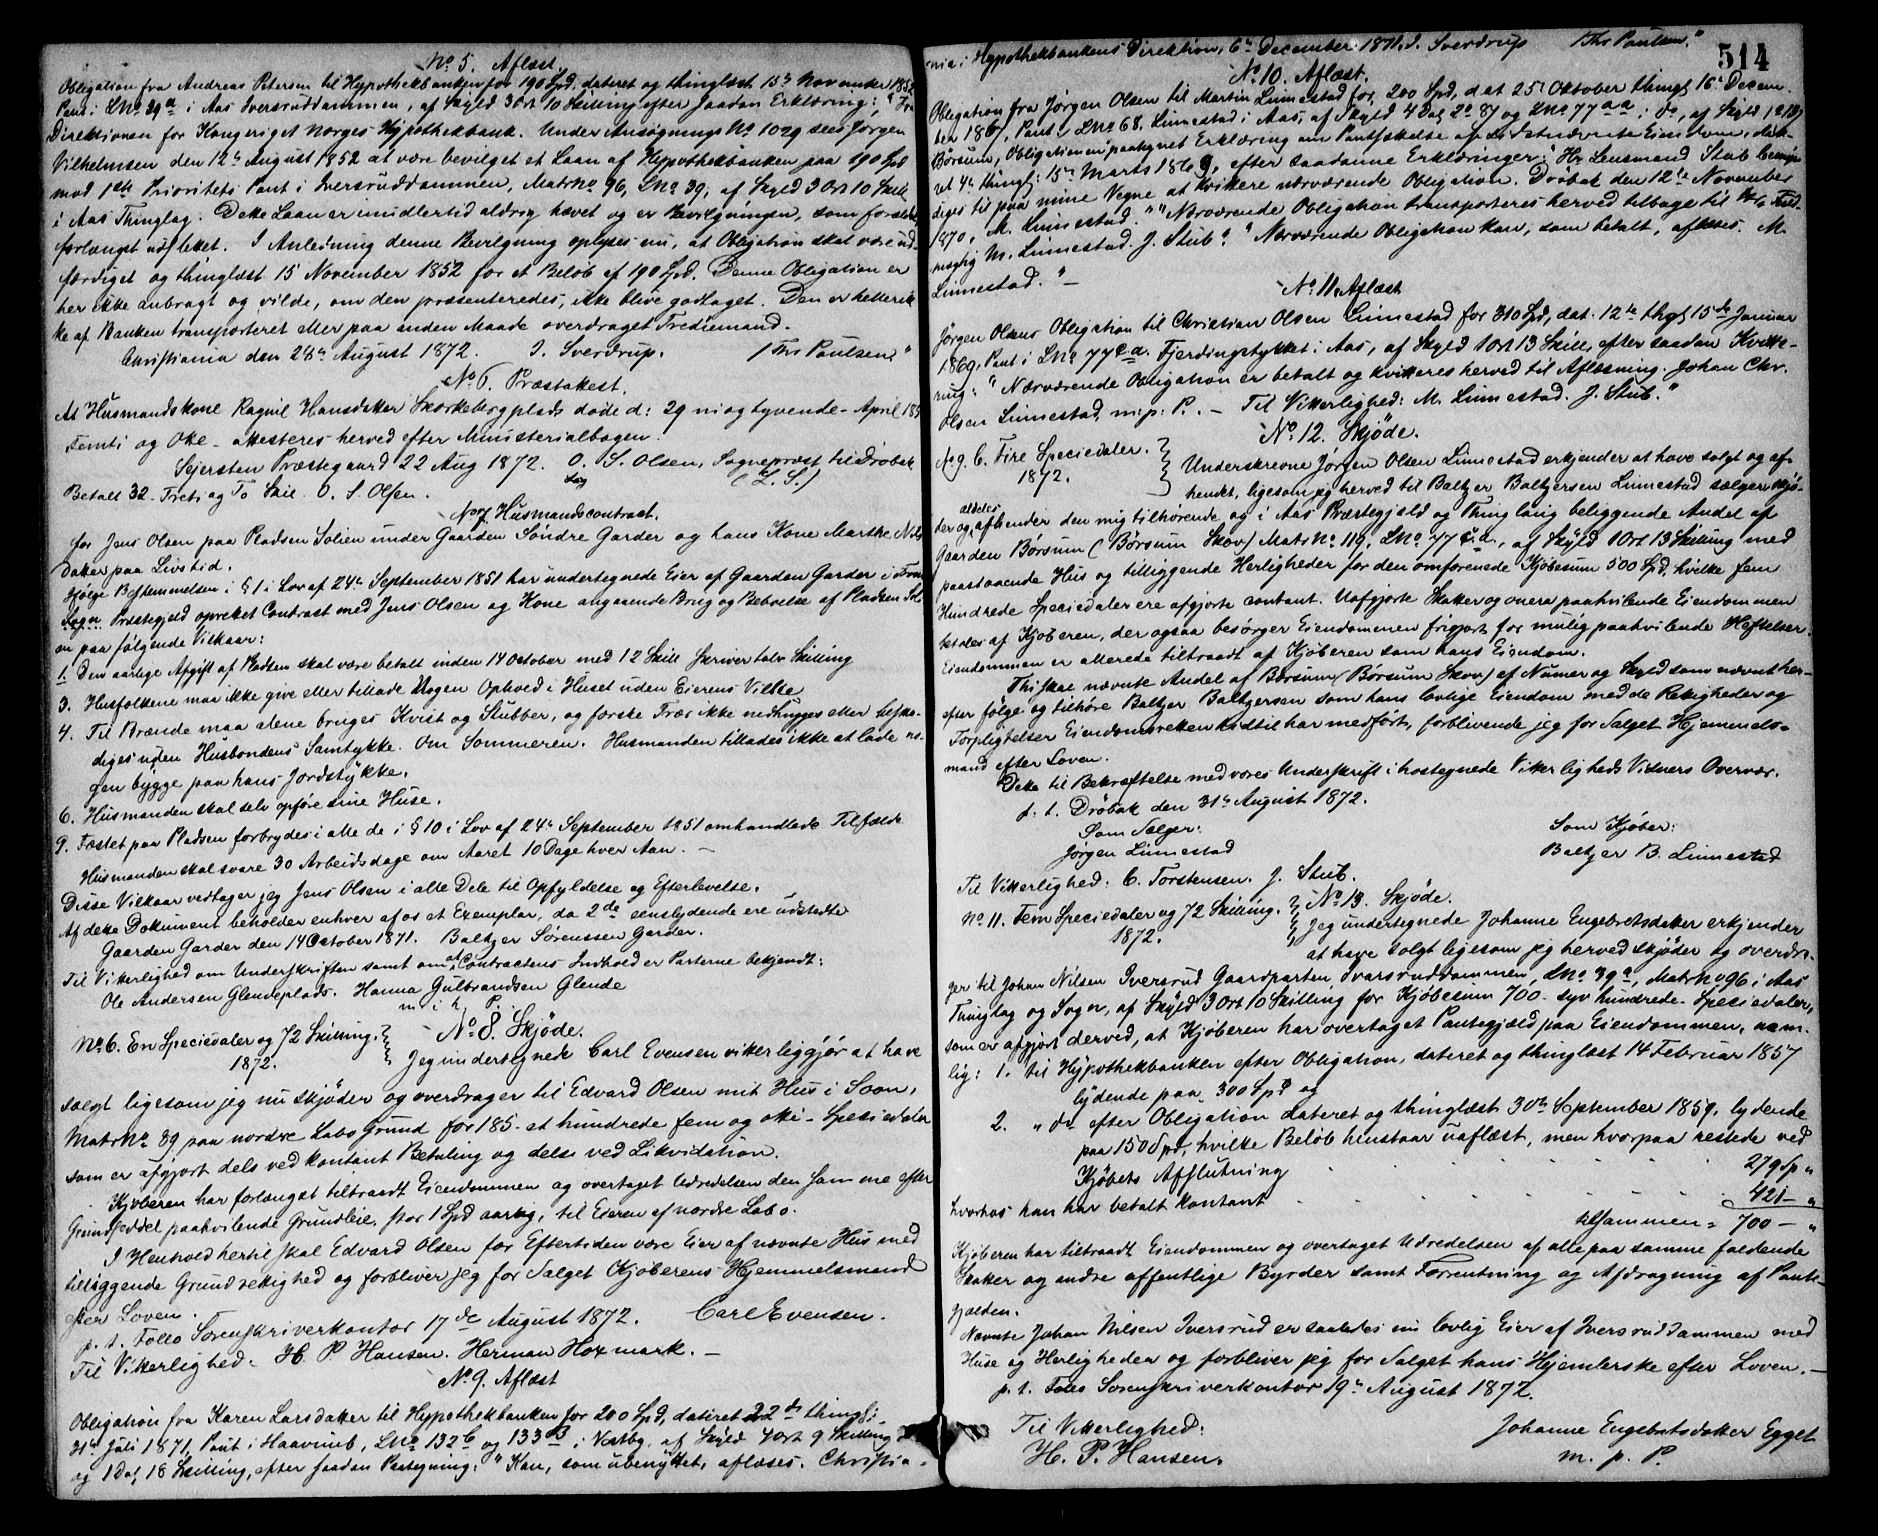 No 5. Aflæst.
Obligation fra Andreas Petersen til Hypothekbanken for 190 Spd, dateret og thinglæst 15de November 1852
Pant: LNo 39a i Aas Iversruddammen, af Skyld 3 Ort 10 Skilling efter saadan Erklæring: "Fra
Direktionen for Kongeriget Norges Hypothekbank. Under Ansøgnings No 1029 sees Jørgen
Vilhelmsen den 12te August 1852 at være bevilget et Laan af Hypothekbanken paa 190 Spd
mod 1ste Prioritets Pant i Iversruddammen, Matr No 96, LNo 39, af Skyld 3 Ort 10 Skill
i Aas Thinglag. Dette Laan er imidlertid aldrig hævet og er Bevilgningen, som forældet
forlængst udslettet. I Anledning denne Bevilgning oplyses nu, at Obligation skal være ud-
færdiget og thinglæst 15 November 1852 for et Beløb af 190 Spd. Denne Obligation er
her ikke anbragt og vilde, om den præsenteredes, ikke blive godtaget. Den er hellerik
ke af Banken transporteret eller paa anden Maade overdraget Trediemand.
Christiania den 28de August 1872. J. Sverdrup. / Ths Paulsen"
No 6. Præsteattest.
At Husmandskone Ragnil Hansdatter Skorkebergplads døde d: 29 ni og tyvende - April 185
Femti og Otte - attesteres herved efter Ministerialbogen.
Sejersten Præstegaard 22 Aug 1872. O. S. Olsen, Sogneprest til Drøbak
Betalt 32. Treti og To Skil. O. S. Olsen. (L. S.)
No 7. Husmandscontract.
for Jens Olsen paa Pladsen Solien under Gaarden Søndre Garder og hans Kone Marthe Nils
datter paa Livstid.
Ifølge Bestemmelsen i § 1 i Lov af 24de September 1851 har undertegnede Eier af Gaarden Garder i
Sogn Præstegjeld oprettet Contract med Jens Olsen og Kone angaaende Brug og Beboelse af Pladsen Sol
en paa følgende Vilkaar:
1. Den aarlige Afgift af Pladsen skal være betalt inden 14 October med 12 Skill skriver tolv Skilling
3. Husfolkene maa ikke give eller tillade Nogen Ophold i Huset uden Eierens Villie
4. Til Brænde maa alene bruges Kvist og Stubber, og færske Træer ikke nedhugges eller beska-
diges uden Husbondens Samtykke. Om Sommeren. Husmanden tillades ikke at lade no-
gen bygge paa hans Jordstykke.
6. Husmanden skal selv opføre sine Huse.
9. Fæstet paa Pladsen forbrydes i alle de i § 10 i Lov af 24de September 1851 omhandlede Tilfælde
Husmanden skal svare 30 Arbeidsdage om Aaret 10 Dage hver Aan. -
Disse Vilkaar vedtager jeg Jens Olsen i alle Dele til Opfyldelse og Efterlevelse.
Af dette Dokument beholder enhver af os et Exemplar, da 2de eenslydende ere udstedte
Gaarden Garder den 14 October 1871. Baltzer Sørenssen Garder.
Til Vitterlighed om Underskriften samt om at Contractens Indhold er Parterne bekjendt:
Ole Andersen Glendeplads. Hanna Gulbrandsen Glende
m i h P.
No 8. Skjøde.
No 6. En Speciedaler og 72 Skilling. 1872.
Jeg undertegnede Carl Evensen vitterliggjør at have
solgt ligesom jeg nu skjøder og overdrager til Edvard Olsen mit Hus i Soon,
Matr No 89 paa nordre Labo Grund for 185 - et hundrede fem og otti - Speciedaler
som er afgjort dels ved kontant Betaling og dels ved Likvidation.
Kjøberen har forlængst tiltraadt Eiendommen og overtaget Udredelsen den Samme efter
Grundseddel paahvilende Grundleie, stor 1 Spd aarlig, til Eieren af nordre Labo.
I Henhold hertil skal Edvard Olsen for Eftertiden være Eier af nævnte Hus med
tilliggende Grundrettighed og forbliver jeg for Salget Kjøberens Hjemmelsmand
efter Loven.
p. t. Follo Sorenskriverkontor 17de August 1872. Carl Evensen.
Til Vitterlighed: H. P. Hansen. Herman Hoxmark. -
No 9. Aflæst
Obligation fra Karen Larsdatter til Hypothekbanken for 200 Spd, dateret 22de thingl:
31te Juli 1871, Pant i Haavimb, LNo 132b og 133B i Vestby, af Skyld 4 Ort 9 Skilling
og 1 Dal 18 Skilling, efter saadan Paategning: "Kan, som ubenyttet, aflæses. Christia-
514
nia i Hypothekbankens Direktion, 6te December 1871. J. Sverdrup / Ths Paulsen."
No 10. Aflæst.
Obligation fra Jørgen Olsen til Martin Linnestad for 200 Spd, dat 25 Oktober thingl 16 Decem-
ber 1867, Pant i LNo 68. Linnestad i Aas, af Skyld 4 Dal 2 Ort 8 og LNo 77aa i do, af Skyld
Børsum, Obligationen paategnet Erklæring om Pantfrafaldelse af sidstnævnte Eiendom, date-
ret 4de thingl: 15de Marts 1869, efter saadanne Erklæringer: "Hr Lensmand Stub bemyn-
diges til paa mine Vegne at kvittere nærværende Obligation. Drøbak den 12te November
1870. M. Linnestad." "Nærværende Obligation transporteres herved tilbage til
M. Linnestad. J. Stub." "Nærværende Obligation kan, som betalt, aflæses. M.
Linnestad." -
No 11. Aflæst
Jørgen Olsens Obligation til Christian Olsen Linnestad for 310 Spd, dat. 12te thgl 15de Januar
1869, Pant i LNo 77ca. Fjerdingstykket i Aas, af Skyld 1 Ort 13 Skill, efter saadan Kvitte-
ring: "Nærværende Obligation er betalt og kvitteres herved til Aflæsning. Johan Chr.
Olsen Linnestad m. p. P. - Til Vitterlighed: M. Linnestad. J. Stub."
No 12. Skjøde.
No 9. C. Fire Speciedaler. 1872.
Underskrevne Jørgen Olsen Linnestad erkjender at have solgt og af-
hendet, ligesom jeg herved til Baltzer Baltzersen Linnestad sælger, skjø-
der og aldeles afhender den mig tilhørende og i Aas Præstegjæld og Thinglaug beliggende Andel af
Gaarden Børsum (Børsum Skov) Matr No 119, LNo 77ca, af Skyld 1 Ort 13 Skilling med
paastaaende Hus og tilliggende Herligheder for den omforenede Kjøbesum 500 Spd, hvilke fem
Hundrede Speciedaler ere afgjorte contant. Uafgjorte Skatter og onera paahvilende Eiendommen
betales af Kjøberen, der ogsaa besørger Eiendommen frigjort for mulig paahvilende Heftelser.
Eiendommen er allerede tiltraadt af Kjøberen som hans Eiendom.
Thi skal nævnte Andel af Børsum (Børsum Skov) af Numer og Skyld som nævnt her-
efter følge og tilhøre Baltzer Baltzersen som hans lovlige Eiendom med de Rettigheder og
Forpligtelser Eiendomsretten hidtil har medført, forblivende jeg for Salget Hjemmels-
mand efter Loven.
Dette til Bekræftelse med vores Underskrift i hostegnede Vitterligheds Vidners Overvær.
p. t. Drøbak den 31te August 1872.
Som Sælger: Som Kjøber:
Jørgen Linnestad Baltzer B. Linnestad
Til Vitterlighed: C. Torstensen. J. Stub.
No 13. Skjøde.
No 11. Fem Speciedaler og 72 Skilling. 1872.
Jeg undertegnede Johanne Engebretsdatter erkjender
at have solgt ligesom jeg herved skjøder og overdra-
ger til Johan Nilsen Iversrud Gaardparten Ivarsruddammen, LNo 39a, Matr No 96 i Aas
Thinglag og Sogn, af Skyld 3 Ort 10 Skilling for Kjøbesum 700 - syv hundrede - Speciedaler,
som er afgjort derved, at Kjøberen har overtaget Pantegjæld paa Eiendommen, nem-
lig: 1. til Hypothekbanken efter Obligation, dateret og thinglæst 14 Februar 1857
lydende paa 300 Spd og
2. " do efter Obligation dateret og thinglæst 30te September 1859, lydende
paa 150 Spd, hvilke Beløb henstaar uaflæst, men hvorpaa restede ved
Kjøbets Afslutning . . . . . . 279 Sp "
hvorhos han har betalt kontant . . . . . . 421 - "
tilsammen = 700 - "
Kjøberen har tiltraadt Eiendommen og overtaget Udredelsen af alle paa samme faldende
Skatter og andre offentlige Byrder samt Forrentning og Afdragning af Pante-
gjælden.
Nævnte Johan Nilsen Iversrud er saaledes nu lovlig Eier af Iversruddammen med
Huse og Herligheder og forbliver jeg for Salget hans Hjemlerske efter Loven. -
p. t. Follo Sorenskriverkontor 19de August 1872.
Til Vitterlighed: Johanne Engebretsdatter Egget
H. P. Hansen. m. p. P.